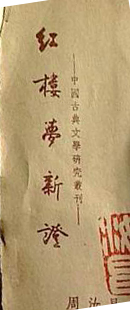 中國古典文學研究叢刊
紅樓夢新證
周汝